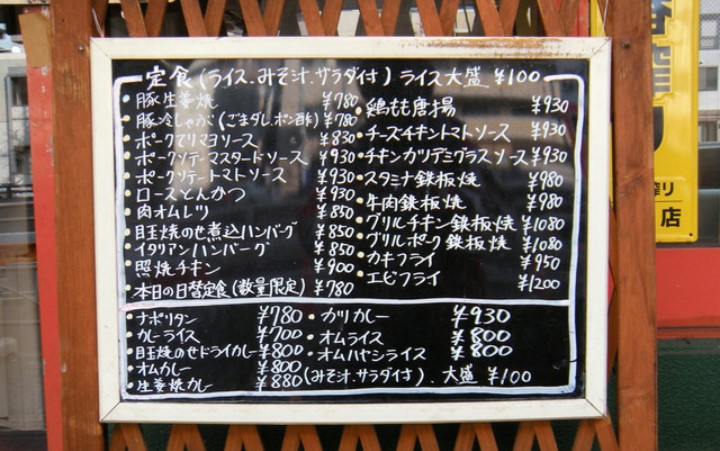 定食(ライス.みそ汁.サラダ付) ライス大盛 ¥100
・豚生姜焼 ¥780
・豚冷しゃぶ(ごまダレ.ポン酢) ¥780
・ポークてりマヨソース ¥830
・ポークソテーマスタードソース ¥930
・ポークソテートマトソース ¥930
・ロースとんかつ ¥930
・肉オムレツ ¥850
・目玉焼のせ煮込ハンバーグ ¥850
・イタリアンハンバーグ ¥850
・照焼チキン ¥900
・本日の日替定食(数量限定) ¥780
・鶏もも唐揚 ¥930
・チーズチキントマトソース ¥930
・チキンカツデミグラスソース ¥930
・スタミナ鉄板焼 ¥980
・牛肉鉄板焼 ¥980
・グリルチキン鉄板焼 ¥1080
・グリルポーク鉄板焼 ¥1080
・カキフライ ¥950
・エビフライ ¥1200
・ナポリタン ¥780
・カレーライス ¥700
・目玉焼のせドライカレー ¥800
・オムカレー ¥800
・生姜焼カレー ¥880
・カツカレー ¥930
・オムライス ¥800
・オムハヤシライス ¥800
(みそ汁.サラダ付). 大盛 ¥100
店